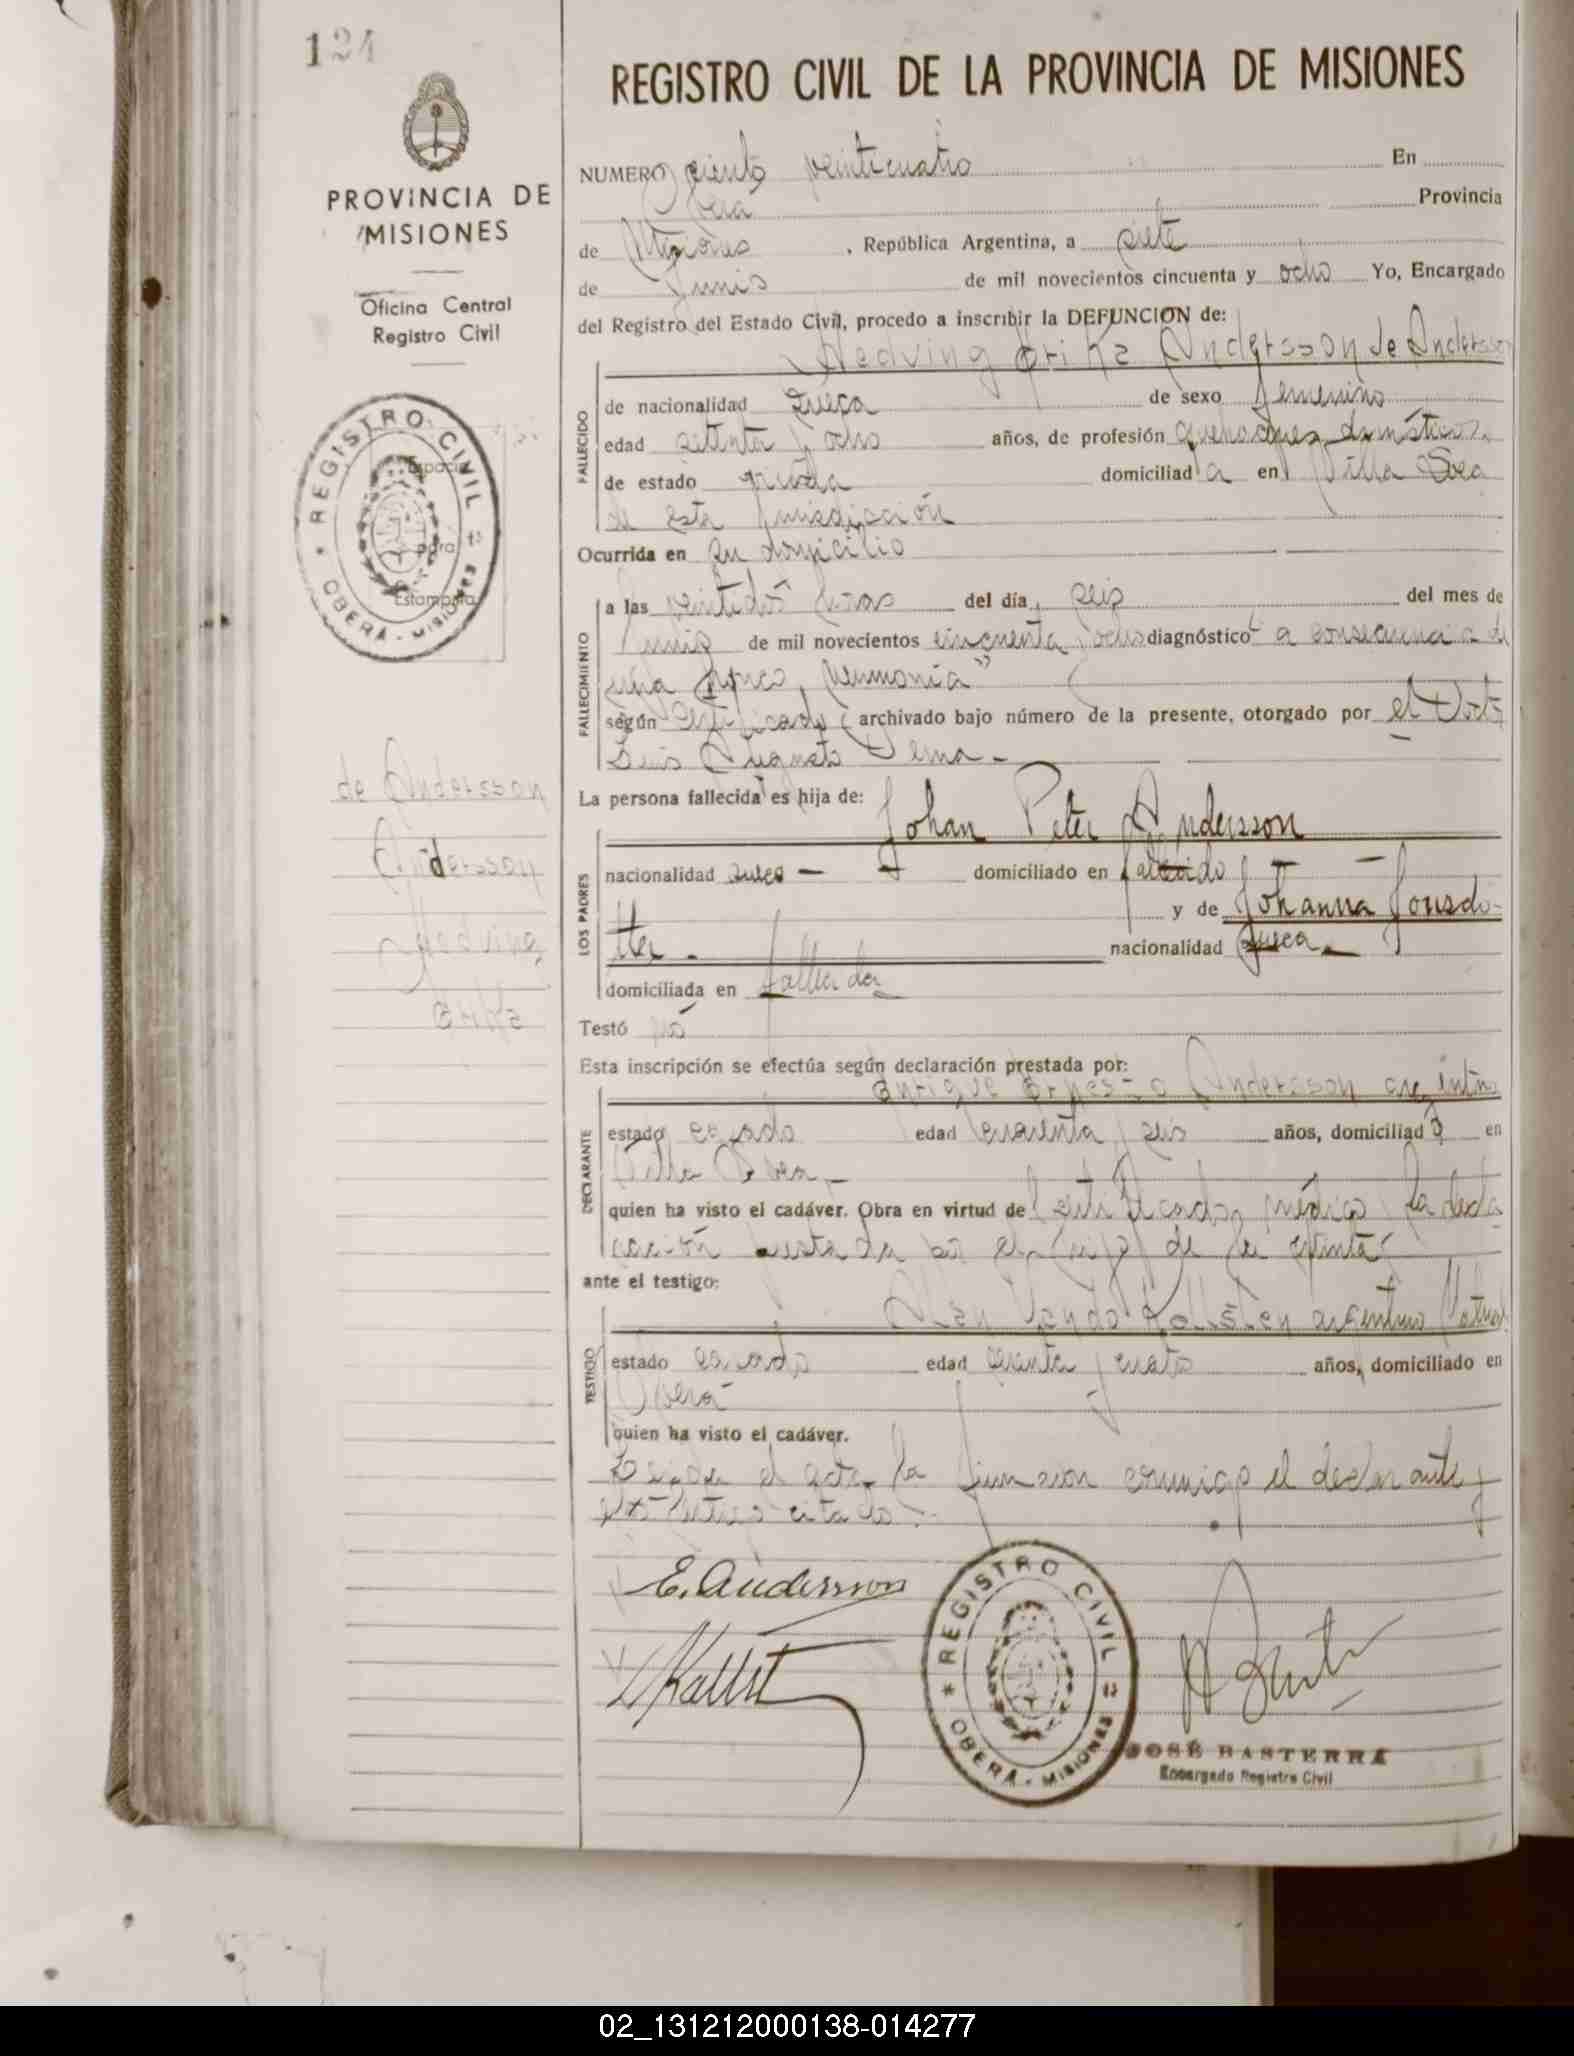 124
PROVINCIA DE
MISIONES
Oficina Central
Registro Civil
REGISTRO CIVIL
OBERÁ - MISIONES
Espacio
para
Estampilla
de Andersson
Andersson
Hedving
Erika
REGISTRO CIVIL DE LA PROVINCIA DE MISIONES
NUMERO ciento veinticuatro En
Oberá Provincia
de Misiones , República Argentina, a siete
de Junio de mil novecientos cincuenta y ocho Yo, Encargado
del Registro del Estado Civil, procedo a inscribir la DEFUNCION de:
Hedving Erika Andersson de Andersson
FALLECIDO
de nacionalidad sueca de sexo femenino
edad setenta y ocho años, de profesión quehaceres domésticos
de estado viuda domiciliad a en Villa Svea
de esta jurisdicción
Ocurrida en su domicilio
FALLECIMIENTO
a las veintidós horas del día seis del mes de
junio de mil novecientos cincuenta y ocho diagnóstico a consecuencia de
una bronco neumonía”
según certificado archivado bajo número de la presente, otorgado por el Doctor
Luis Augusto
La persona fallecida es hija de:
LOS PADRES
Johan Peter Andersson
nacionalidad sueco - domiciliado en fallecido
y de Johanna Jonsdo-
tter - nacionalidad sueca -
domiciliada en fallecida
Testó no
Esta inscripción se efectúa según declaración prestada por:
DECLARANTE
Enrique Ernesto Andersson argentino
estado casado edad cuarenta y seis años, domiciliad o en
Villa Svea -
quien ha visto el cadáver. Obra en virtud de certificado médico y la decla
ración prestada por el hijo de la extinta
ante el testigo:
TESTIGO
Kallsten argentino
estado casado edad y cuatro años, domiciliado en
Oberá
quien ha visto el cadáver.
Leída el acta la firmaron conmigo el declarante y
el testigo citado.-
E. Andersson
Kallst
REGISTRO CIVIL
OBERÁ - MISIONES
JOSÉ BASTERRA
Encargado Registro Civil
02_131212000138-014277